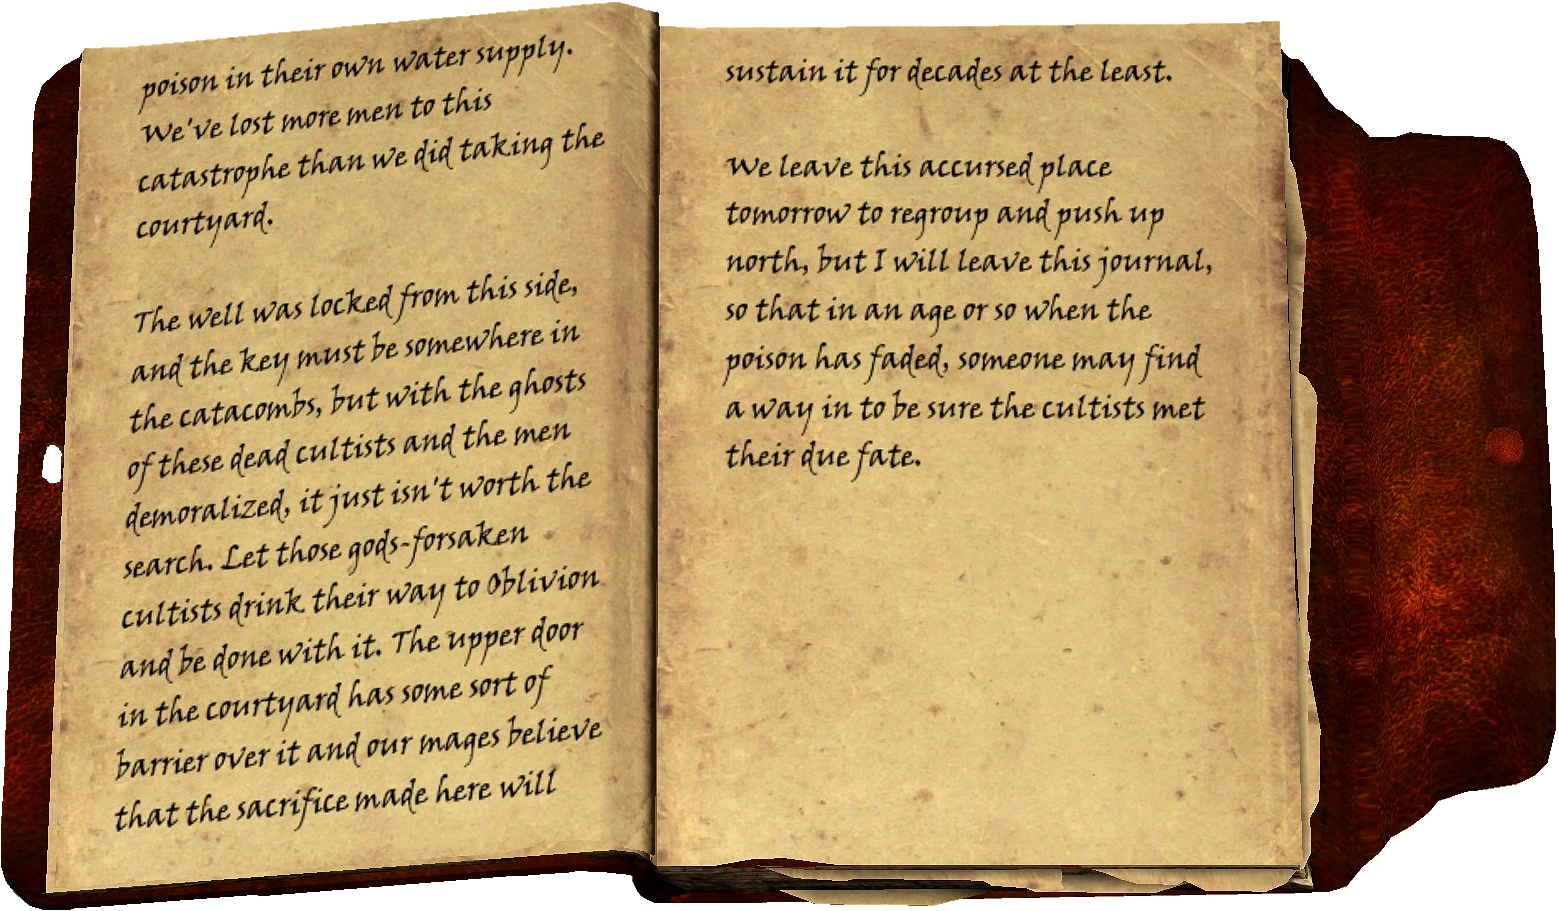 poison in their own water supply.
We've lost more men to this
catastrophe than we did taking the
courtyard.
The well was locked from this side,
and the key must be somewhere in
the catacombs, but with the ghosts
of these dead cultists and the men
demoralized, it just isn't worth the
search. Let those gods-forsaken
cultists drink their way to Oblivion
and be done with it. The upper door
in the courtyard has some sort of
barrier over it and our mages believe
that the sacrifice made here will
sustain it for decades at the least.
We leave this accursed place
tomorrow to regroup and push up
north, but I will leave this journal,
so that in an age or so when the
poison has faded, someone may find
a way in to be sure the cultists met
their due fate.